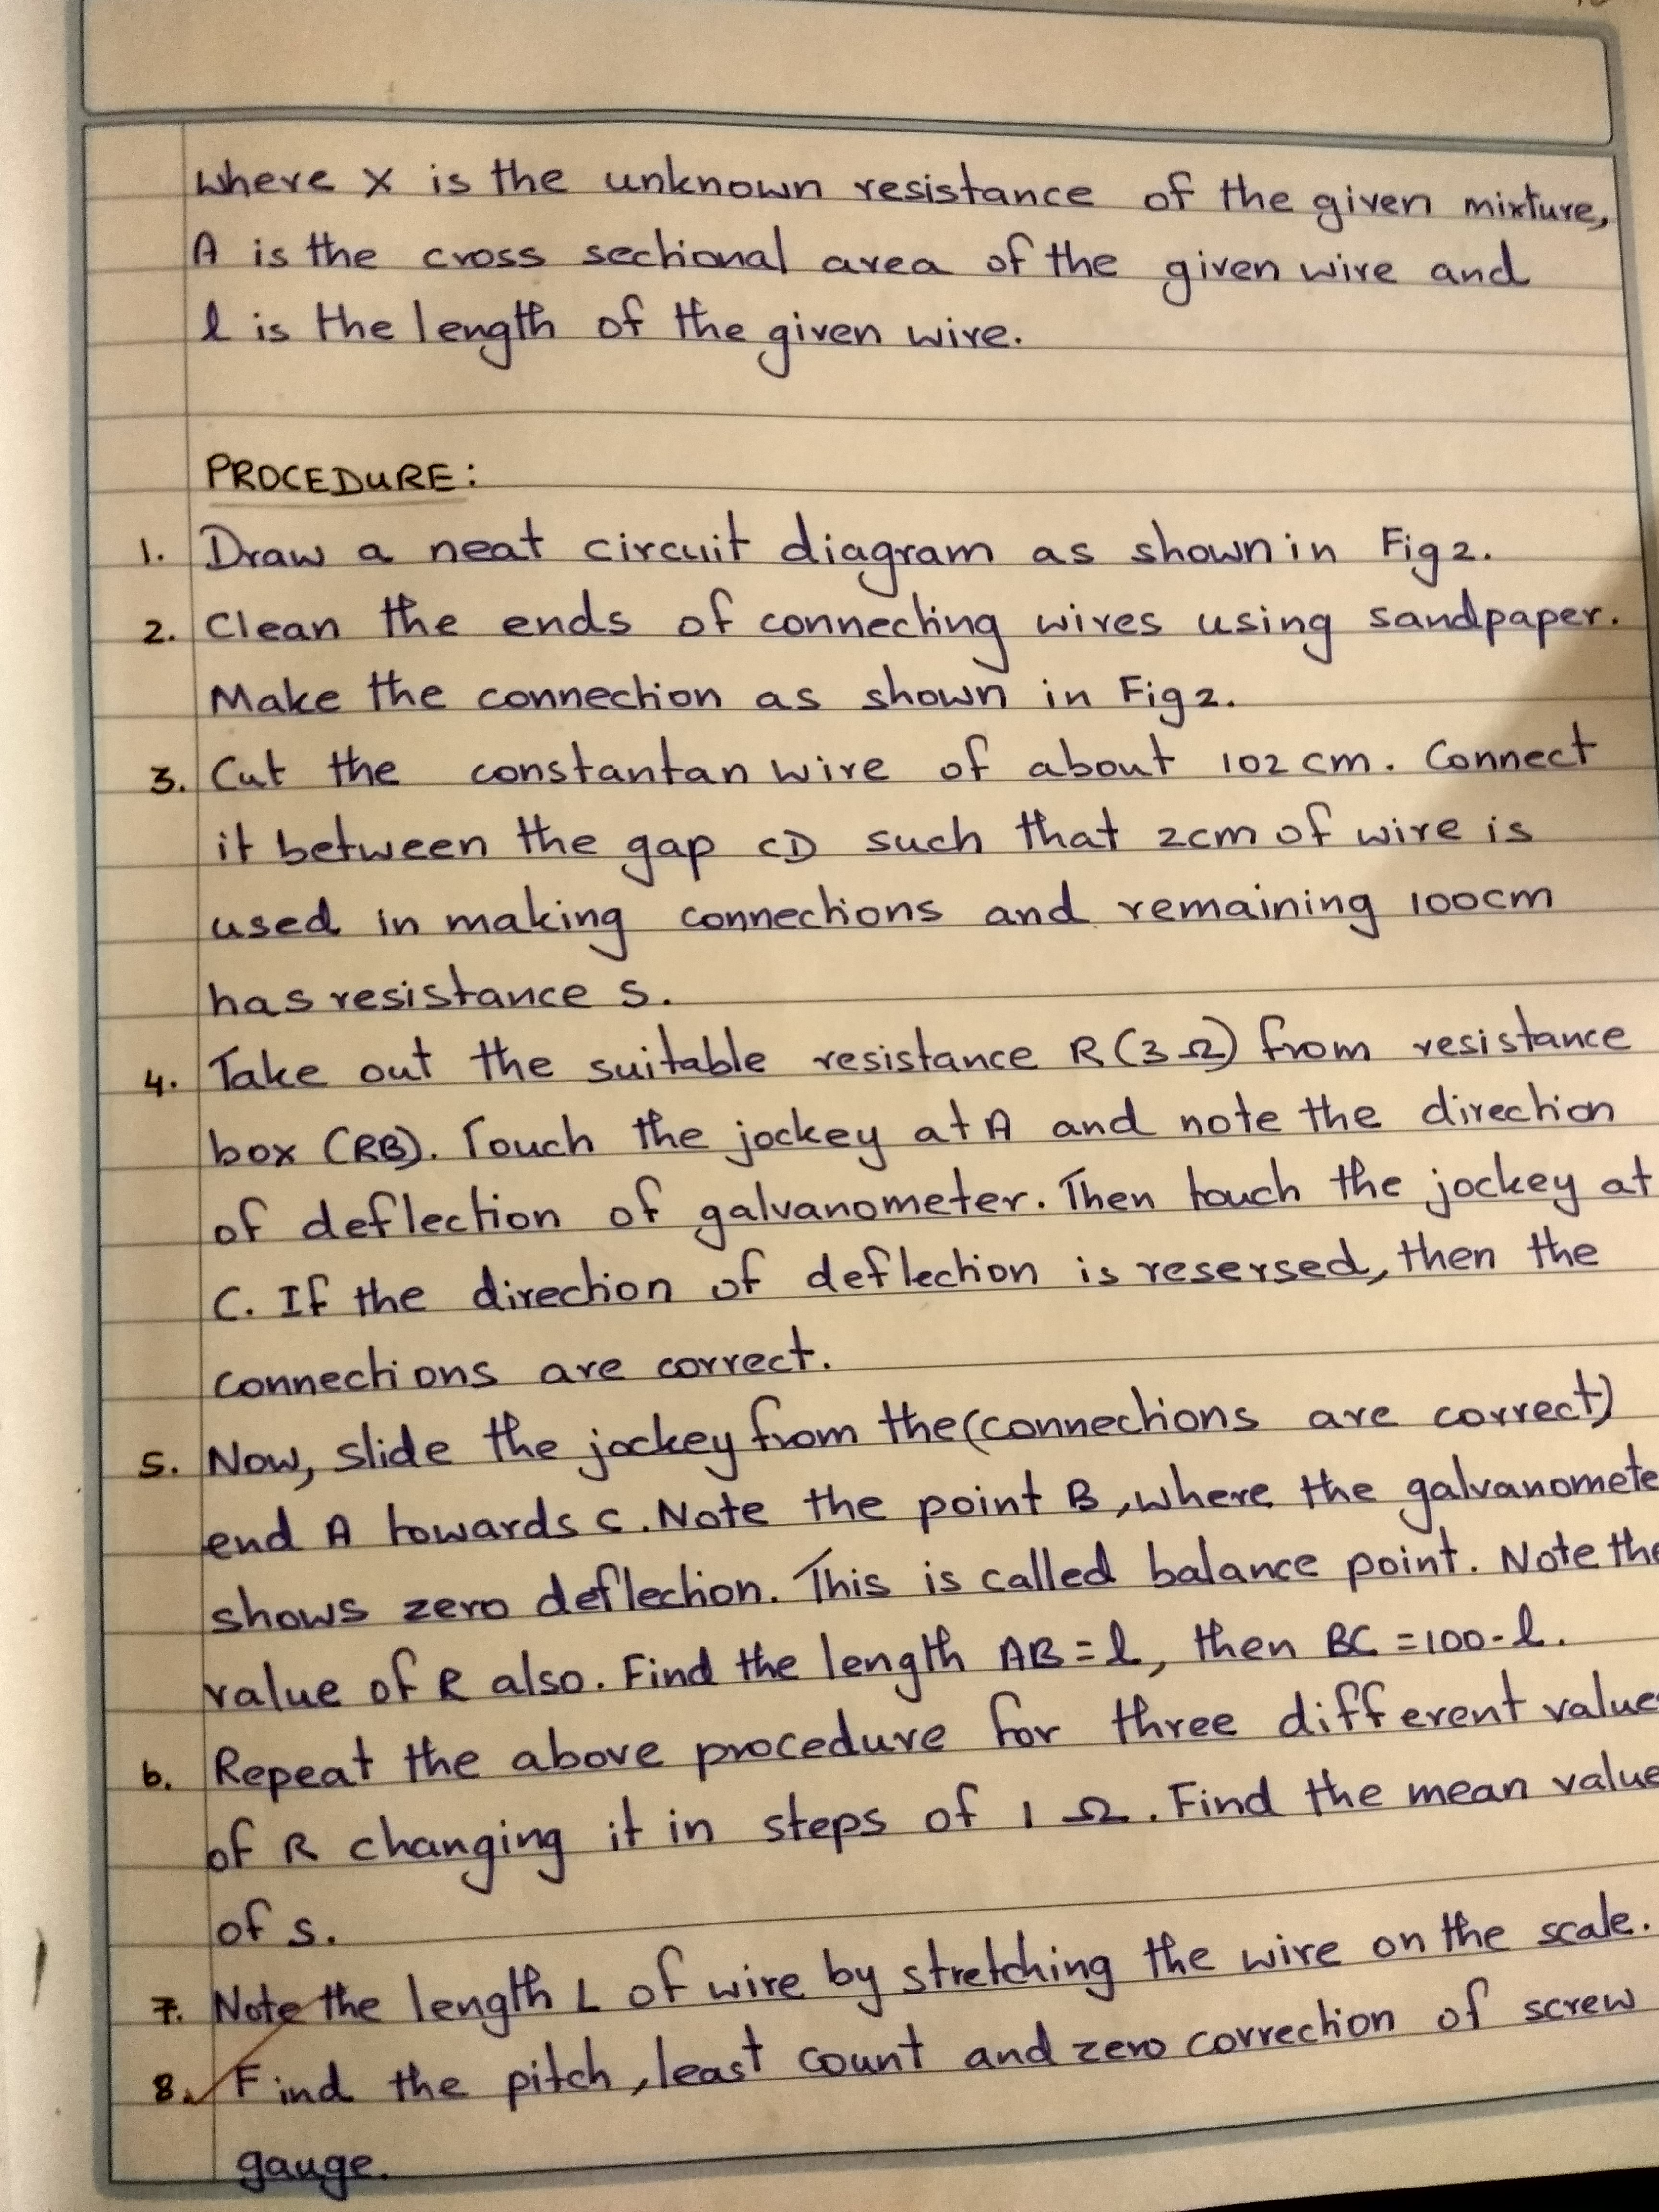 where x is the unknown resistance of the given mixture,
A is the cross sectional area of the given wire and
l is the length of the given wire.
PROCEDURE:
1. Draw a neat circuit diagram as shown in Fig 2.
2. Clean the ends of connecting wires using sandpaper.
Make the connection as shown in Fig 2.
3. Cut the constantan wire of about 102 cm. Connect
it between the gap CD such that 2cm of wire is
used in making connections and remaining 100cm
has resistance S.
4. Take out the suitable resistance R (3 Ω) from resistance
box (RB). Touch the jockey at A and note the direction
of deflection of galvanometer. Then touch the jockey at
C. If the direction of deflection is resersed, then the
connections are correct.
5. Now, slide the jockey from the (connections are correct)
end A towards C. Note the point B, where the galvanomete
shows zero deflection. This is called balance point. Note the
value of R also. Find the length AB = l, then BC = 100-l.
6. Repeat the above procedure for three different value
of R changing it in steps of 1 Ω. Find the mean value
of S.
7. Note the length L of wire by stretching the wire on the scale.
8. Find the pitch, least count and zero correction of screw
gauge.